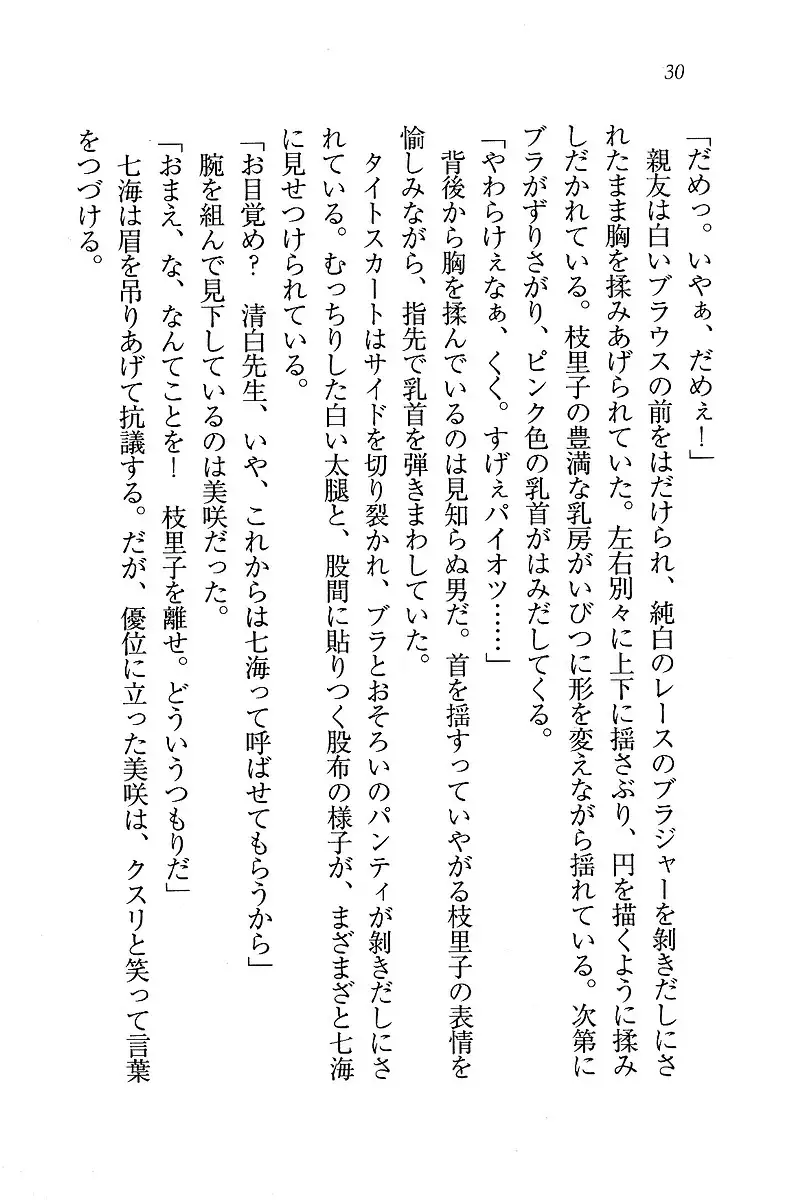 30
「だめっ。いやぁ、だめぇ！」
　親友は白いブラウスの前をはだけられ、純白のレースのブラジャーを剝きだしにさ
れたまま胸を揉みあげられていた。左右別々に上下に揺さぶり、円を描くように揉み
しだかれている。枝里子の豊満な乳房がいびつに形を変えながら揺れている。次第に
ブラがずりさがり、ピンク色の乳首がはみだしてくる。
「やわらけぇなぁ、くく。すげぇパイオツ……」
　背後から胸を揉んでいるのは見知らぬ男だ。首を揺すっていやがる枝里子の表情を
愉しみながら、指先で乳首を弾きまわしていた。
　タイトスカートはサイドを切り裂かれ、ブラとおそろいのパンティが剝きだしにさ
れている。むっちりした白い太腿と、股間に貼りつく股布の様子が、まざまざと七海
に見せつけられている。
「お目覚め？　清白先生、いや、これからは七海って呼ばせてもらうから」
　腕を組んで見下しているのは美咲だった。
「おまえ、な、なんてことを！　枝里子を離せ。どういうつもりだ」
　七海は眉を吊りあげて抗議する。だが、優位に立った美咲は、クスリと笑って言葉
をつづける。